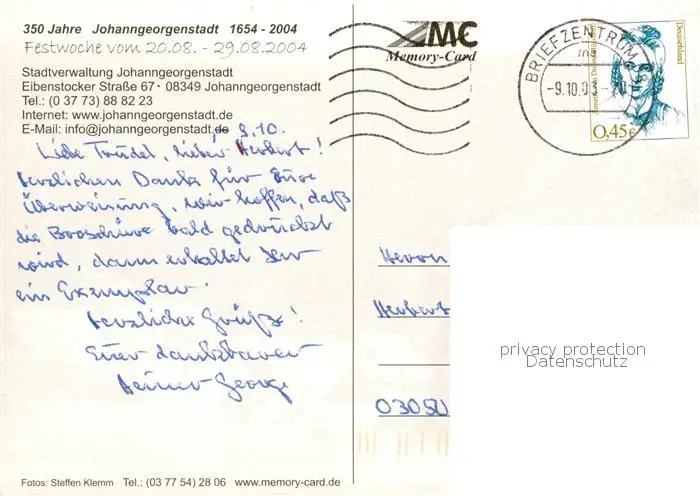 350 Jahre Johanngeorgenstadt 1654 - 2004
Festwoche vom 20.08. - 29.08.2004
Stadtverwaltung Johanngeorgenstadt
Eibenstocker Straße 67 · 08349 Johanngeorgenstadt
Tel.: (0 37 73) 88 82 23
Internet: www.johanngeorgenstadt.de
E-Mail: info@johanngeorgenstadt.de
9.10.
Liebe Trudel, lieber Herbert!
Herzlichen Dank für Eure
Überweisung, wir hoffen, daß
die Broschüre bald gedruckt
wird, dann erhaltet Ihr
ein Exemplar.
Herzliche Grüße!
Euer dankbarer
Heiner George
Fotos: Steffen Klemm Tel.: (03 77 54) 28 06 www.memory-card.de
MC
Memory-Card
BRIEFZENTRUM
-9.10.03
Deutschland
0,45€
Herrn
Herbert
03050
privacy protection
Datenschutz